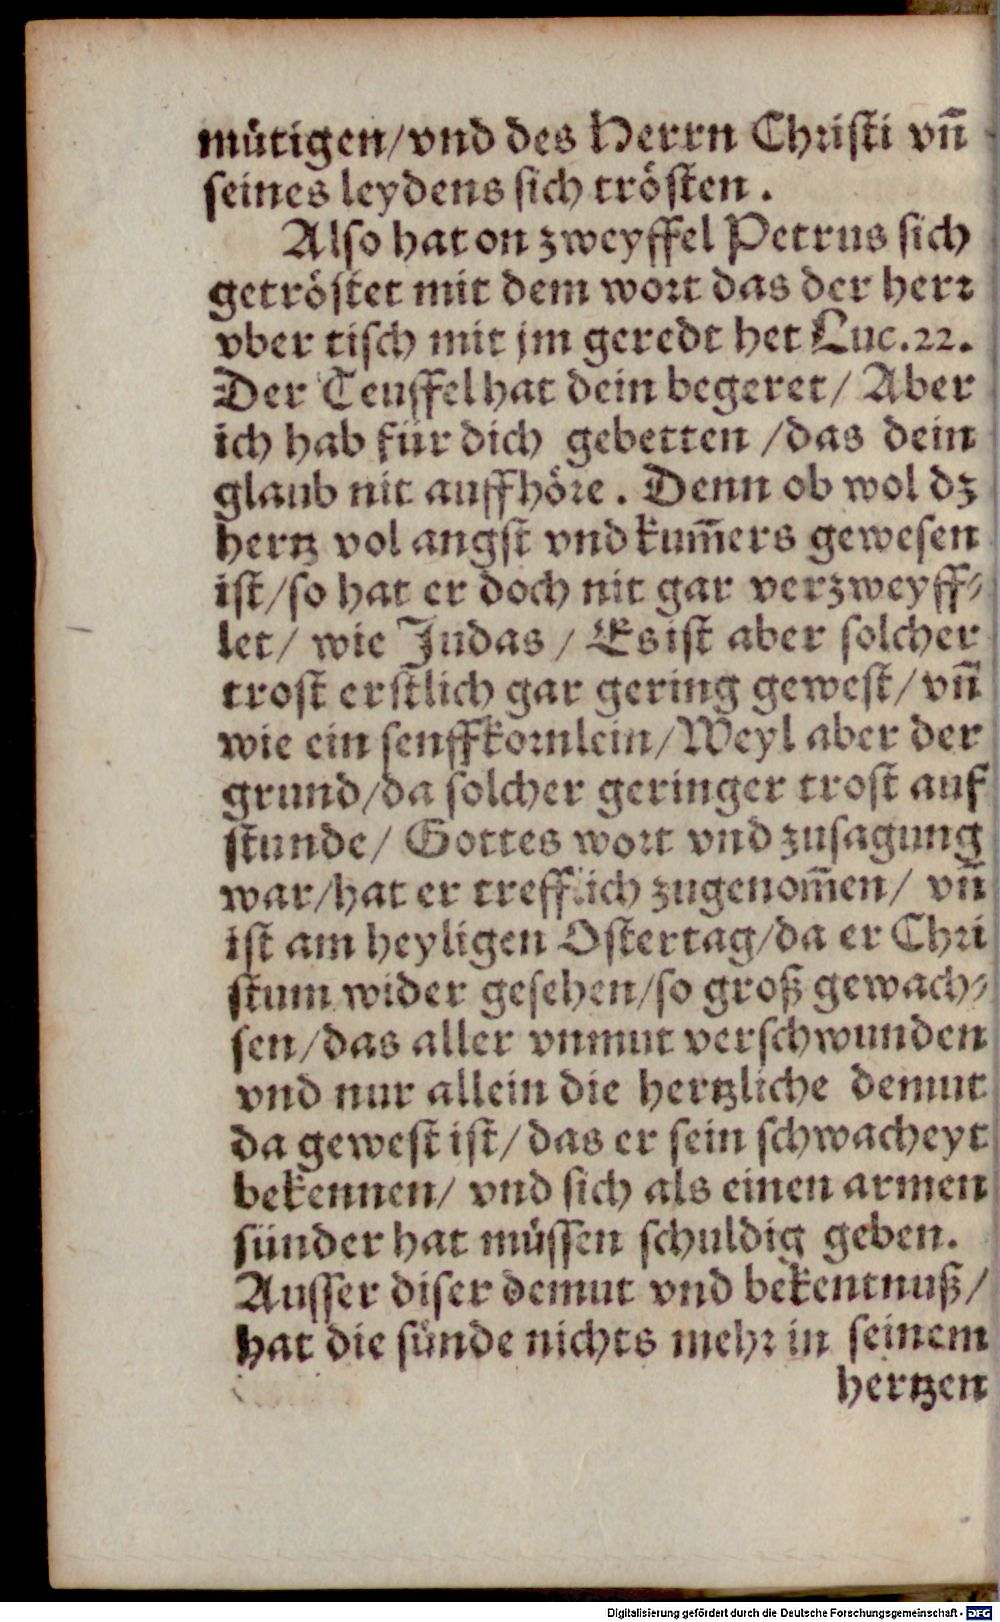 mütigen/vnd des Herrn Christi vn̄
seines leydens sich trösten.
Also hat on zweyffel Petrus sich
getröstet mit dem wort das der herr
vber tisch mit jm geredt het Luc.22.
Der Teuffel hat dein begeret/ Aber
ich hab für dich gebetten /das dein
glaub nit auffhöre. Denn ob wol dz
hertz vol angst vnd kum̄ers gewesen
ist/so hat er doch nit gar verzweyff-
let/ wie Judas / Es ist aber solcher
trost erstlich gar gering gewest/ vn̄
wie ein senffkornlein/Weyl aber der
grund/da solcher geringer trost auf
stunde/ Gottes wort vnd zusagung
war/hat er trefflich zugenom̄en/ vn̄
ist am heyligen Ostertag/da er Chri
stum wider gesehen/so groß gewach-
sen/das aller vnmut verschwunden
vnd nur allein die hertzliche demut
da gewest ist/ das er sein schwacheyt
bekennen/ vnd sich als einen armen
sünder hat müssen schuldig geben.
Ausser diser demut vnd bekentnuß/
hat die sünde nichts mehr in seinem
hertzen
Digitalisierung gefördert durch die Deutsche Forschungsgemeinschaft - DFG